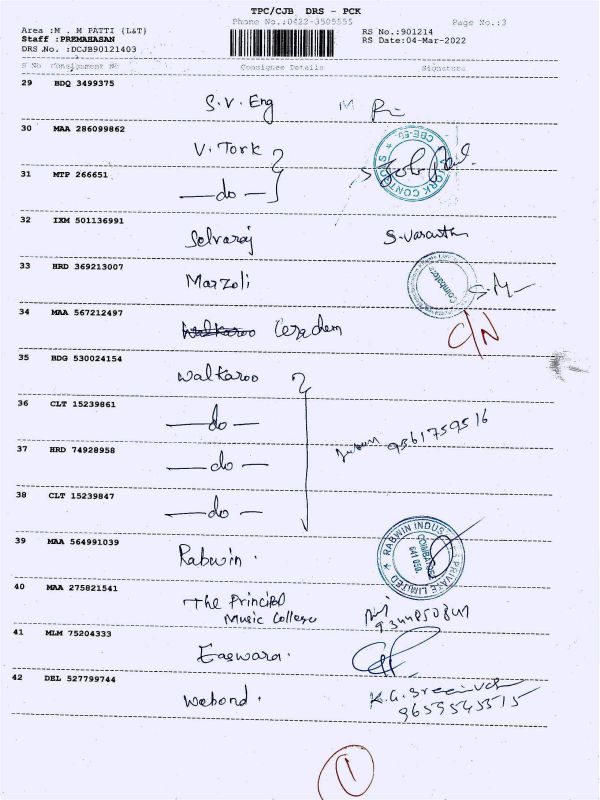 TPC/CJB DRS - PCK
Phone No.:0422-3505555 Page No.:3
Area :M . M PATTI (L&T) RS No.:901214
Staff :PREMAHASAN RS Date:04-Mar-2022
DRS No. :DCJB90121403
S No Consignment No Consignee Details Signature
29 BDQ 3499375 S.V. Eng
30 MAA 286099862 V. Tork
31 MTP 266651 —do—
32 IXM 501136991 Selvaraj S.Vasanth
33 HRD 369213007 Marzoli
Coimbatore
34 MAA 567212497 Walkaroo Ceradem C/N
35 BDG 530024154 Walkaroo
36 CLT 15239861 —do—
9361759516
37 HRD 74928958 —do—
38 CLT 15239847 —do—
39 MAA 564991039 Rabwin.
RABWIN INDUS PRIVATE LIMITED
40 MAA 275821541 The Principal
Music College
41 MLM 75204333 Easwara.
42 DEL 527799744 Webond. K.G. Sreenivas
9659545515
1